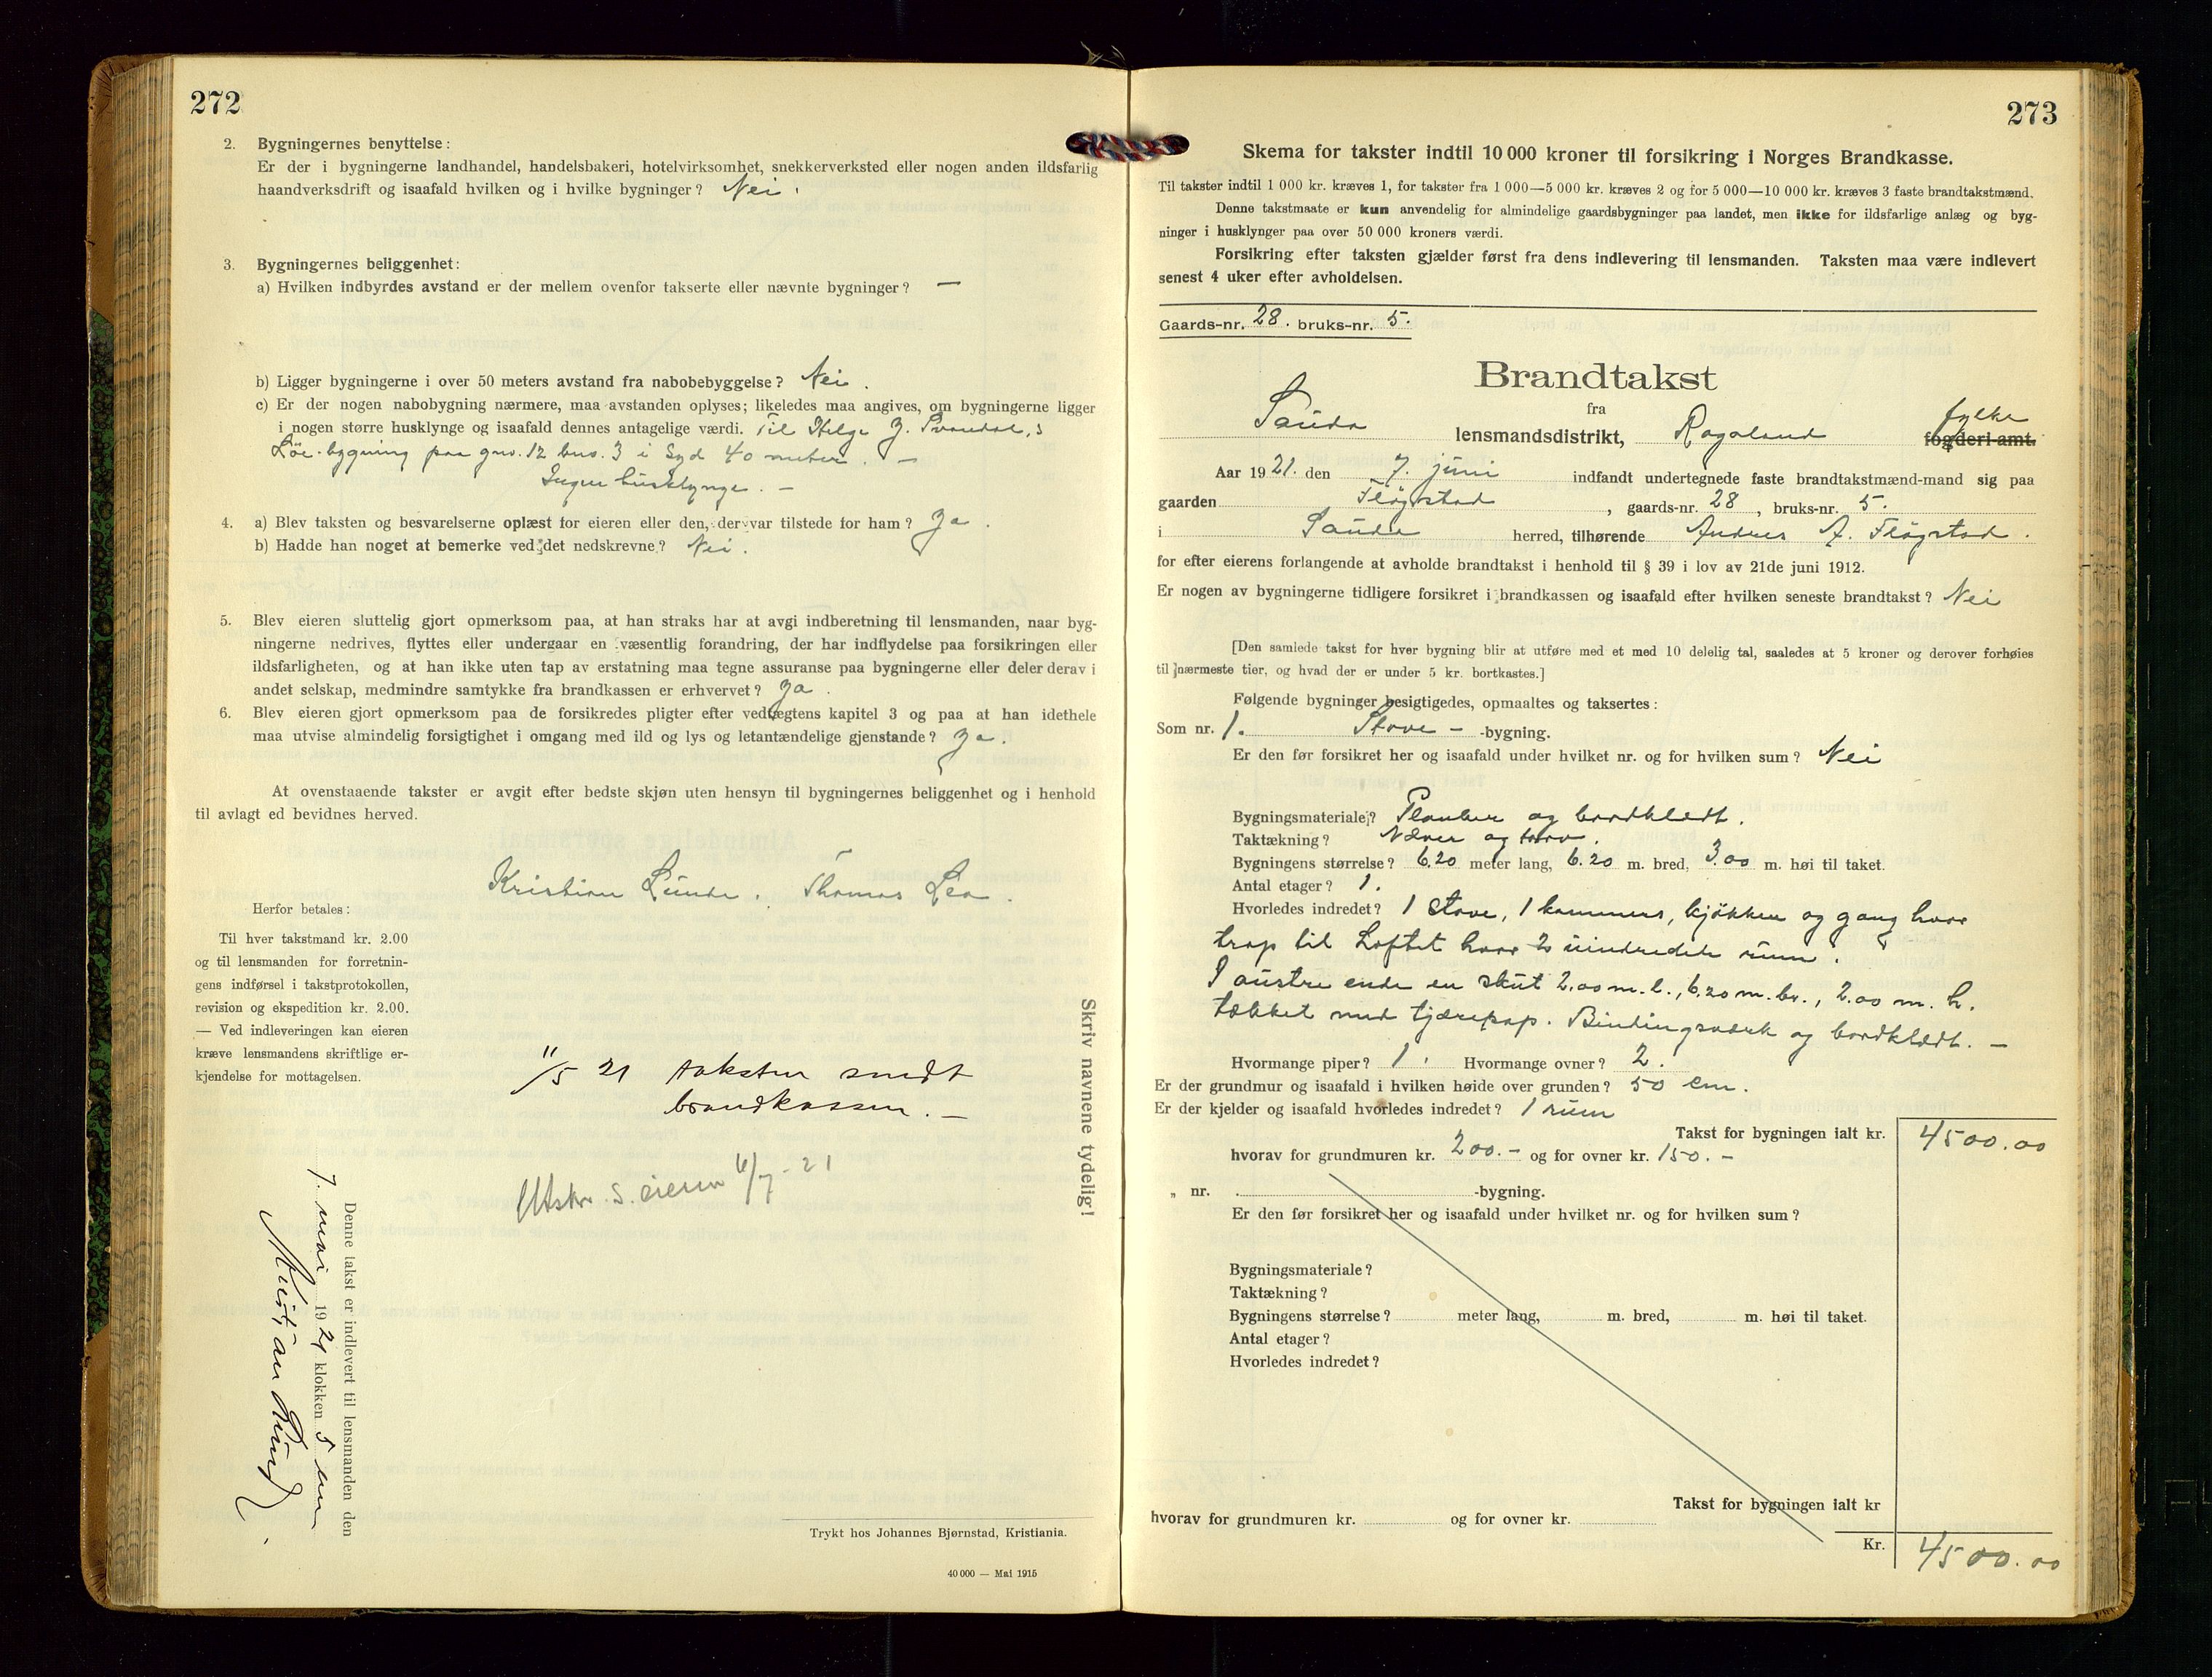 272
2. Bygningernes benyttelse:
Er der i bygningerne landhandel, handelsbakeri, hotelvirksomhet, snekkerverksted eller nogen anden ildsfarlig
haandverksdrift og isaafald hvilken og i hvilke bygninger? Nei.
3. Bygningernes beliggenhet:
a) Hvilken indbyrdes avstand er der mellem ovenfor takserte eller nævnte bygninger? —
b) Ligger bygningerne i over 50 meters avstand fra nabobebyggelse? Nei.
c) Er der nogen nabobygning nærmere, maa avstanden oplyses; likeledes maa angives, om bygningerne ligger
i nogen større husklynge og isaafald dennes antagelige værdi. Til Helge J. Svandal,s
Löe-bygning paa gnr. 12 bno. 3 i Syd 40 meter. —
Ingen husklynge. —
4. a) Blev taksten og besvarelserne oplæst for eieren eller den, der var tilstede for ham? Ja.
b) Hadde han noget at bemerke ved det nedskrevne? Nei.
5. Blev eieren sluttelig gjort opmerksom paa, at han straks har at avgi indberetning til lensmanden, naar byg-
ningerne nedrives, flyttes eller undergaar en væsentlig forandring, der har indflydelse paa forsikringen eller
ildsfarligheten, og at han ikke uten tap av erstatning maa tegne assuranse paa bygningerne eller deler derav i
andet selskap, medmindre samtykke fra brandkassen er erhvervet? Ja.
6. Blev eieren gjort opmerksom paa de forsikredes pligter efter vedtægtens kapitel 3 og paa at han idethele
maa utvise almindelig forsigtighet i omgang med ild og lys og letantændelige gjenstande? Ja.
At ovenstaaende takster er avgit efter bedste skjøn uten hensyn til bygningernes beliggenhet og i henhold
til avlagt ed bevidnes herved.
Kristian Lunde. Thomas Lea.
Herfor betales:
Til hver takstmand kr. 2.00
og til lensmanden for forretnin-
gens indførsel i takstprotokollen,
revision og ekspedition kr. 2.00.
— Ved indleveringen kan eieren
kræve lensmandens skriftlige er-
kjendelse for mottagelsen.
11/5 21 taksten sendt
brandkassen. —
Utskr. s. eieren 4/7-21
Skriv navnene tydelig!
Denne takst er indlevert til lensmanden den
7. mai 1921 klokken 5 em
Trykt hos Johannes Bjørnstad, Kristiania.
40 000 — Mai 1915
273
Skema for takster indtil 10 000 kroner til forsikring i Norges Brandkasse.
Til takster indtil 1 000 kr. kræves 1, for takster fra 1 000—5 000 kr. kræves 2 og for 5 000—10 000 kr. kræves 3 faste brandtakstmænd.
Denne takstmaate er kun anvendelig for almindelige gaardsbygninger paa landet, men ikke for ildsfarlige anlæg og byg-
ninger i husklynger paa over 50 000 kroners værdi.
Forsikring efter taksten gjælder først fra dens indlevering til lensmanden. Taksten maa være indlevert
senest 4 uker efter avholdelsen.
Gaards-nr. 28. bruks-nr. 5.
Brandtakst
fra
Sauda lensmandsdistrikt, Rogaland fylke fogderi-amt.
Aar 1921. den 7. juni indfandt undertegnede faste brandtakstmænd-mand sig paa
gaarden Flögstad, gaards-nr. 28, bruks-nr. 5.
i Sauda herred, tilhørende Andres A. Flögstad.
for efter eierens forlangende at avholde brandtakst i henhold til § 39 i lov av 21de juni 1912.
Er nogen av bygningerne tidligere forsikret i brandkassen og isaafald efter hvilken seneste brandtakst? Nei
[Den samlede takst for hver bygning blir at utføre med et med 10 delelig tal, saaledes at 5 kroner og derover forhøies
til nærmeste tier, og hvad der er under 5 kr. bortkastes.]
Følgende bygninger besigtigedes, opmaaltes og taksertes:
Som nr. 1. Stove- -bygning.
Er den før forsikret her og isaafald under hvilket nr. og for hvilken sum? Nei
Bygningsmateriale? Planker og bordklædt.
Taktækning? Næver og torv.
Bygningens størrelse? 6.20 meter lang, 6.20 m. bred, 3.00 m. høi til taket.
Antal etager? 1.
Hvorledes indredet? 1 stove, 1 kammers, kjökken og gang hvor
trap til Loftet hvor 2 uindredede rum.
I austre ende en skut 2.00 m. l., 6.20 m. br., 2.00 m. h.
tækket med tjærepap. Bindingsværk og bordklædt. —
Hvormange piper? 1. Hvormange ovner? 2.
Er der grundmur og isaafald i hvilken høide over grunden? 50 cm.
Er der kjelder og isaafald hvorledes indredet? 1 rum
Takst for bygningen ialt kr. 4500.00
hvorav for grundmuren kr. 200.— og for ovner kr. 150.—
„ nr. -bygning.
Er den før forsikret her og isaafald under hvilket nr. og for hvilken sum?
Bygningsmateriale?
Taktækning?
Bygningens størrelse? meter lang, m. bred, m. høi til taket.
Antal etager?
Hvorledes indredet?
Takst for bygningen ialt kr
hvorav for grundmuren kr. og for ovner kr.
Kr. 4500.00